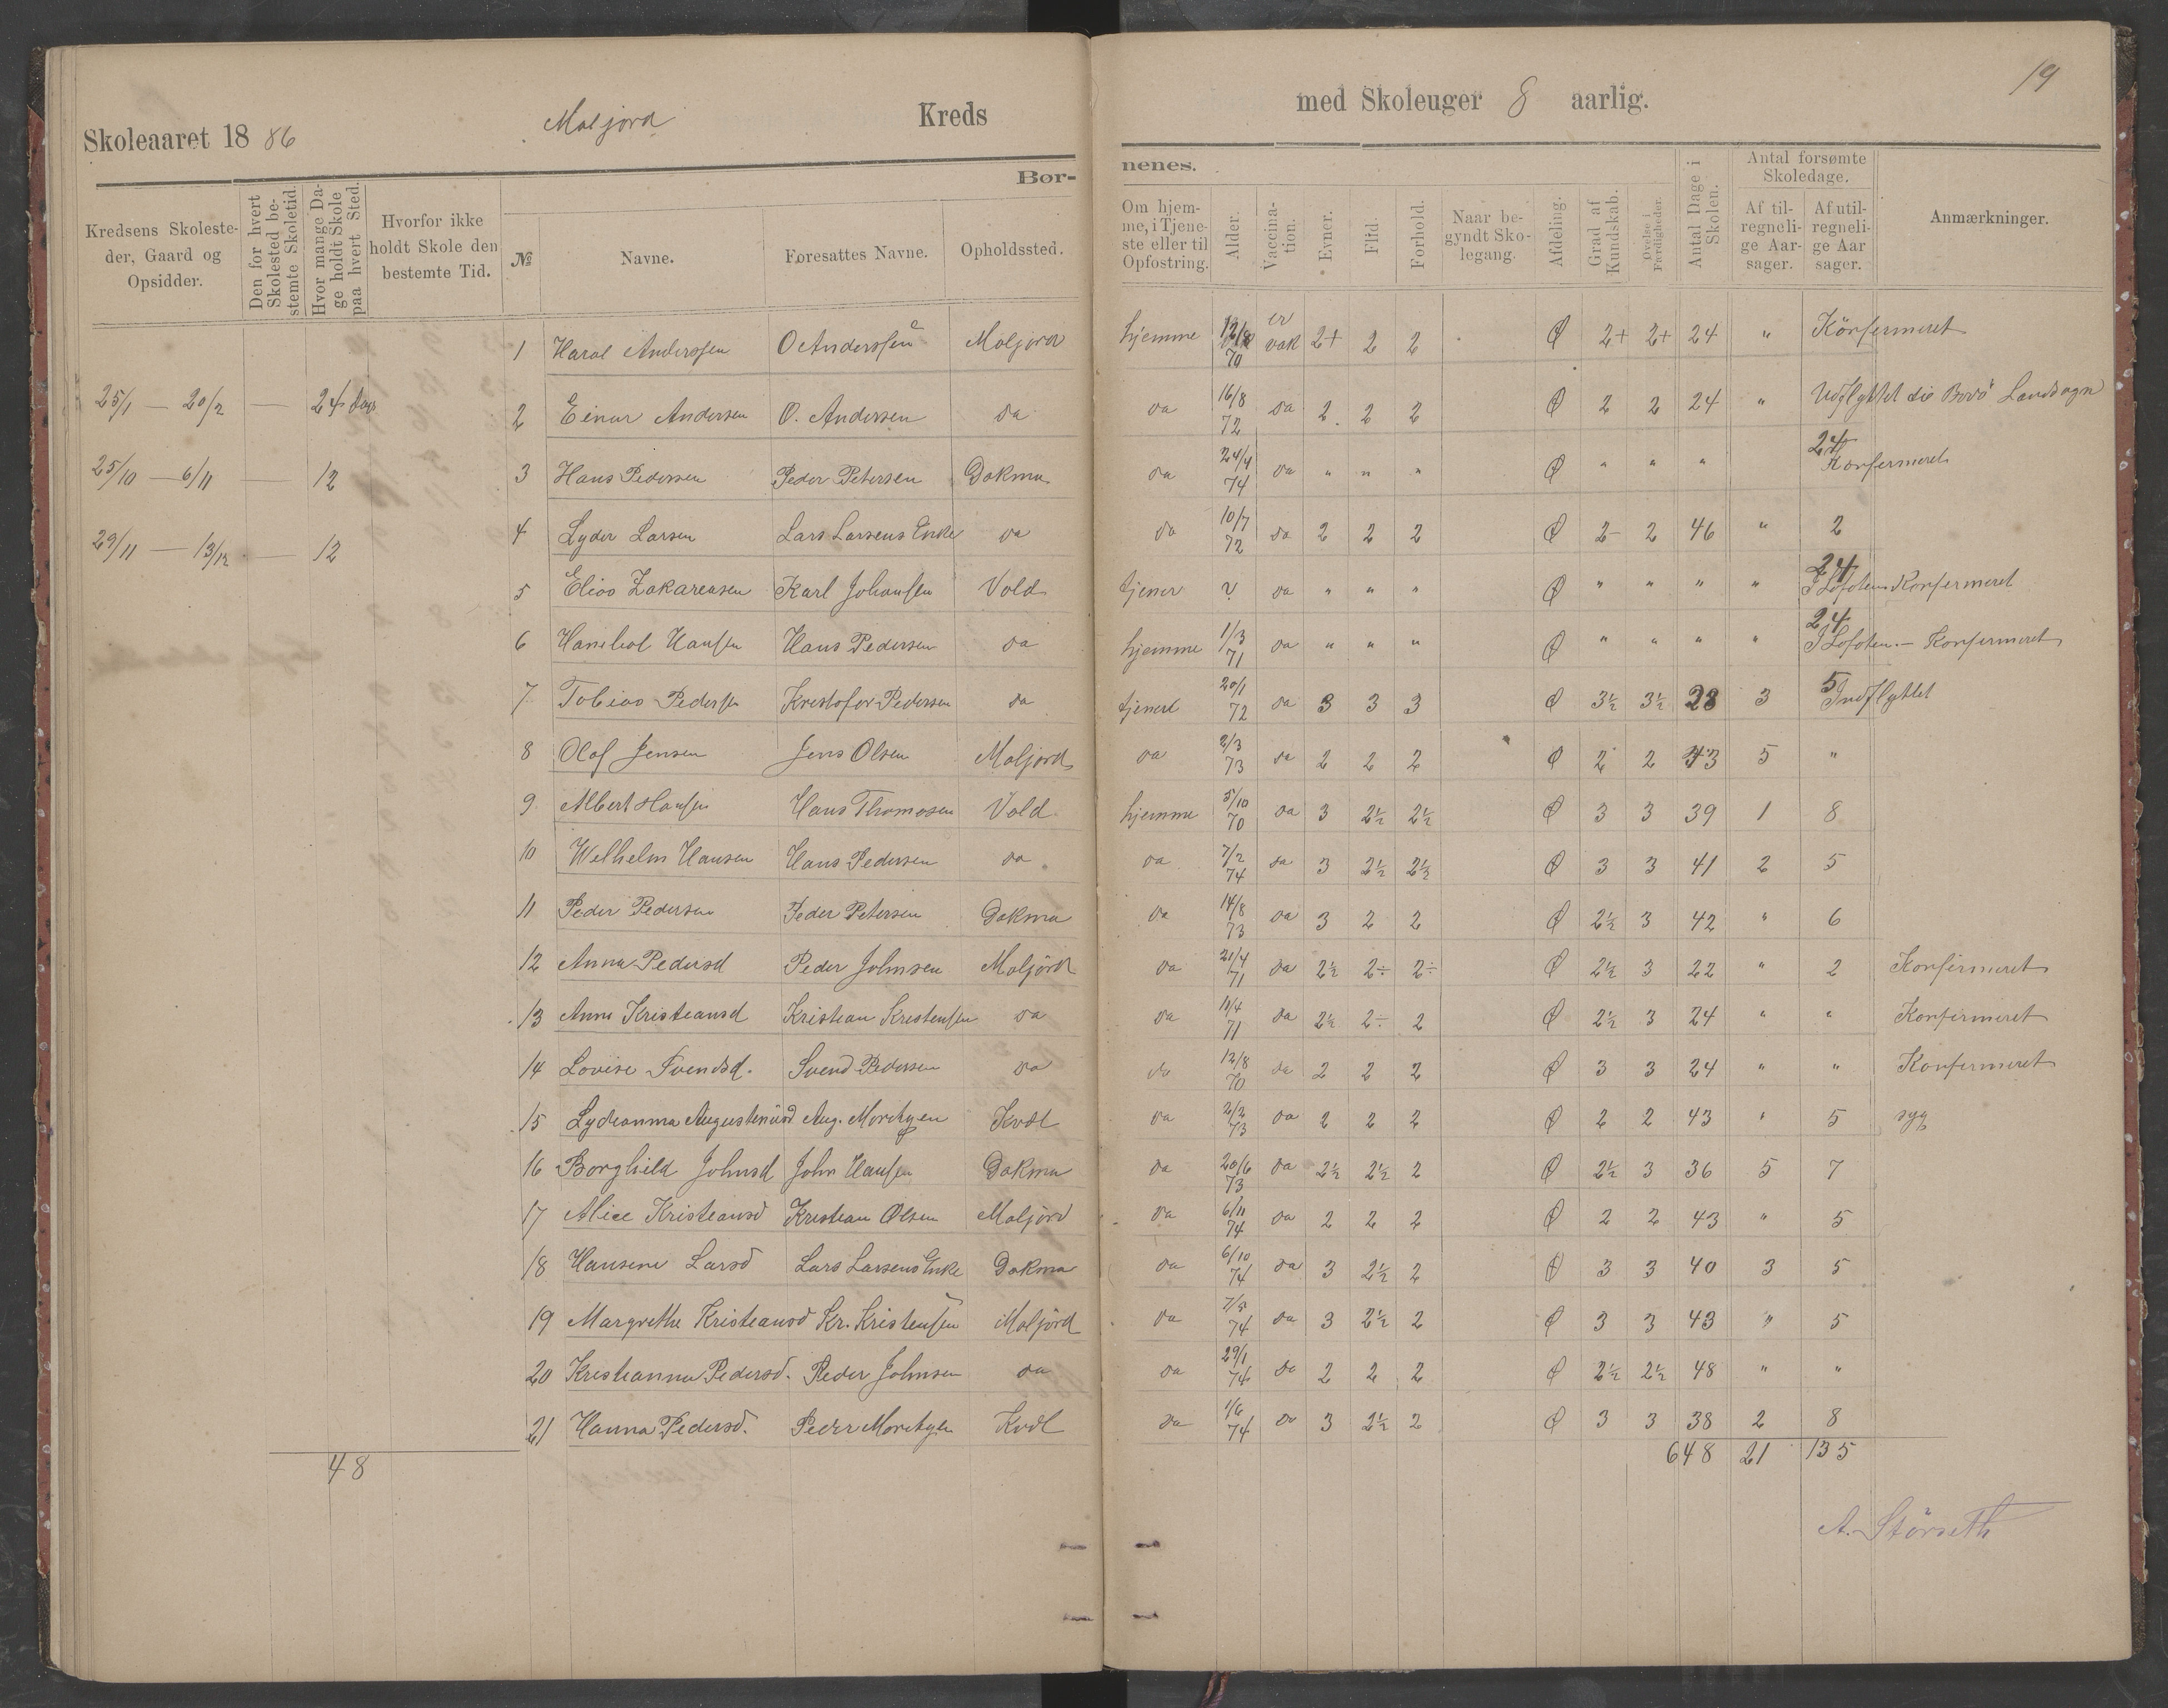 Skoleaaret 1886 Maljord Kreds med Skoleuger 8 aarlig. 19
Bør- nenes.
Kredsens Skolesteder, Gaard og Opsidder. Den for hvert Skolested bestemte Skoletid. Hvor mange Dage holdt Skole paa hvert Sted. Hvorfor ikke holdt Skole den bestemte Tid. № Navne. Foresattes Navne. Opholdssted. Om hjemme, i Tjeneste eller til Opfostring. Alder. Vaccination. Evner. Flid. Forhold. Naar begyndt Skolegang. Afdeling. Grad af Kundskab. Øvelse i Færdigheder. Antal Dage i Skolen. Antal forsømte Skoledage. Af tilregnelige Aarsager. Af utilregnelige Aarsager. Anmærkninger.
25/1 — 20/2 — 24 dage
25/10 — 6/11 — 12
29/11 — 13/12 — 12
1 Haral Anderssen O Anderssen Maljord hjemme 12/8 70 er vak 2+ 2 2 Ø 2+ 2+ 24 " Konfermeret
2 Einar Andersen O. Andersen da da 16/8 72 da 2 2 2 Ø 2 2 24 " Udflyttet Bodö Landsogn
3 Hans Pedersen Peder Petersen Dokmo da 24/4 74 da " " " Ø " " " 24 Konfermeret
4 Lyder Larsen Lars Larsens Enke da da 10/7 72 da 2 2 2 Ø 2- 2 46 " 2
5 Elias Zakareasen Karl Johansen Vold tjener ? da " " " Ø " " " " 24 I Lofoten Konfermeret
6 Hanibal Hansen Hans Pedersen da hjemme 1/3 71 da " " " Ø " " " " 24 I Lofoten. — Konfermeret
7 Tobias Pedersen Kristofer Pedersen da tjener 20/1 72 da 3 3 3 Ø 3½ 3½ 28 3 5 Indflyttet
8 Olaf Jensen Jens Olsen Maljord da 2/3 73 da 2 2 2 Ø 2 2 43 5 "
9 Albert Hansen Hans Thomasen Vold hjemme 5/10 70 da 3 2½ 2½ Ø 3 3 39 1 8
10 Welhelm Hansen Hans Pedersen da da 7/2 74 da 3 2½ 2½ Ø 3 3 41 2 5
11 Peder Pedersen Peder Petersen Dokmo da 14/8 73 da 3 2 2 Ø 2½ 3 42 " 6
12 Anna Pedersd Peder Johnsen Maljord da 21/4 71 da 2½ 2÷ 2÷ Ø 2½ 3 22 " 2 Konfirmeret
13 Anna Kristeansd Kristean Kristensen da da 11/4 71 da 2½ 2÷ 2 Ø 2½ 3 24 " " Konfirmeret
14 Lovise Svendsd. Svend Pedersen da da 12/8 70 da 2 2 2 Ø 3 3 24 " " Konfermeret
15 Lydeanna Augustinusd Aug. Moritzen Kvdl da 2/2 73 da 2 2 2 Ø 2 2 43 " 5 syg
16 Borghild Johnsd John Hansen Dokmo da 20/6 73 da 2½ 2½ 2 Ø 2½ 3 36 5 7
17 Alice Kristeansd Kristean Olsen Maljord da 6/11 74 da 2 2 2 Ø 2 2 43 " 5
18 Hansine Larsd Lars Larsens Enke Dokmo da 6/10 74 da 3 2½ 2 Ø 3 3 40 3 5
19 Margrethe Kristeansd Kr. Kristensen Maljord da 7/5 74 da 3 2½ 2 Ø 3 3 43 " 5
20 Kristianna Pedersd. Peder Johnsen da da 29/1 74 da 2 2 2 Ø 2½ 2½ 48 " "
21 Hanna Pedersd. Peder Moritzen Kvdl da 1/6 74 da 3 2½ 2 Ø 3 3 38 2 8
48 648 21 135
A. Störseth